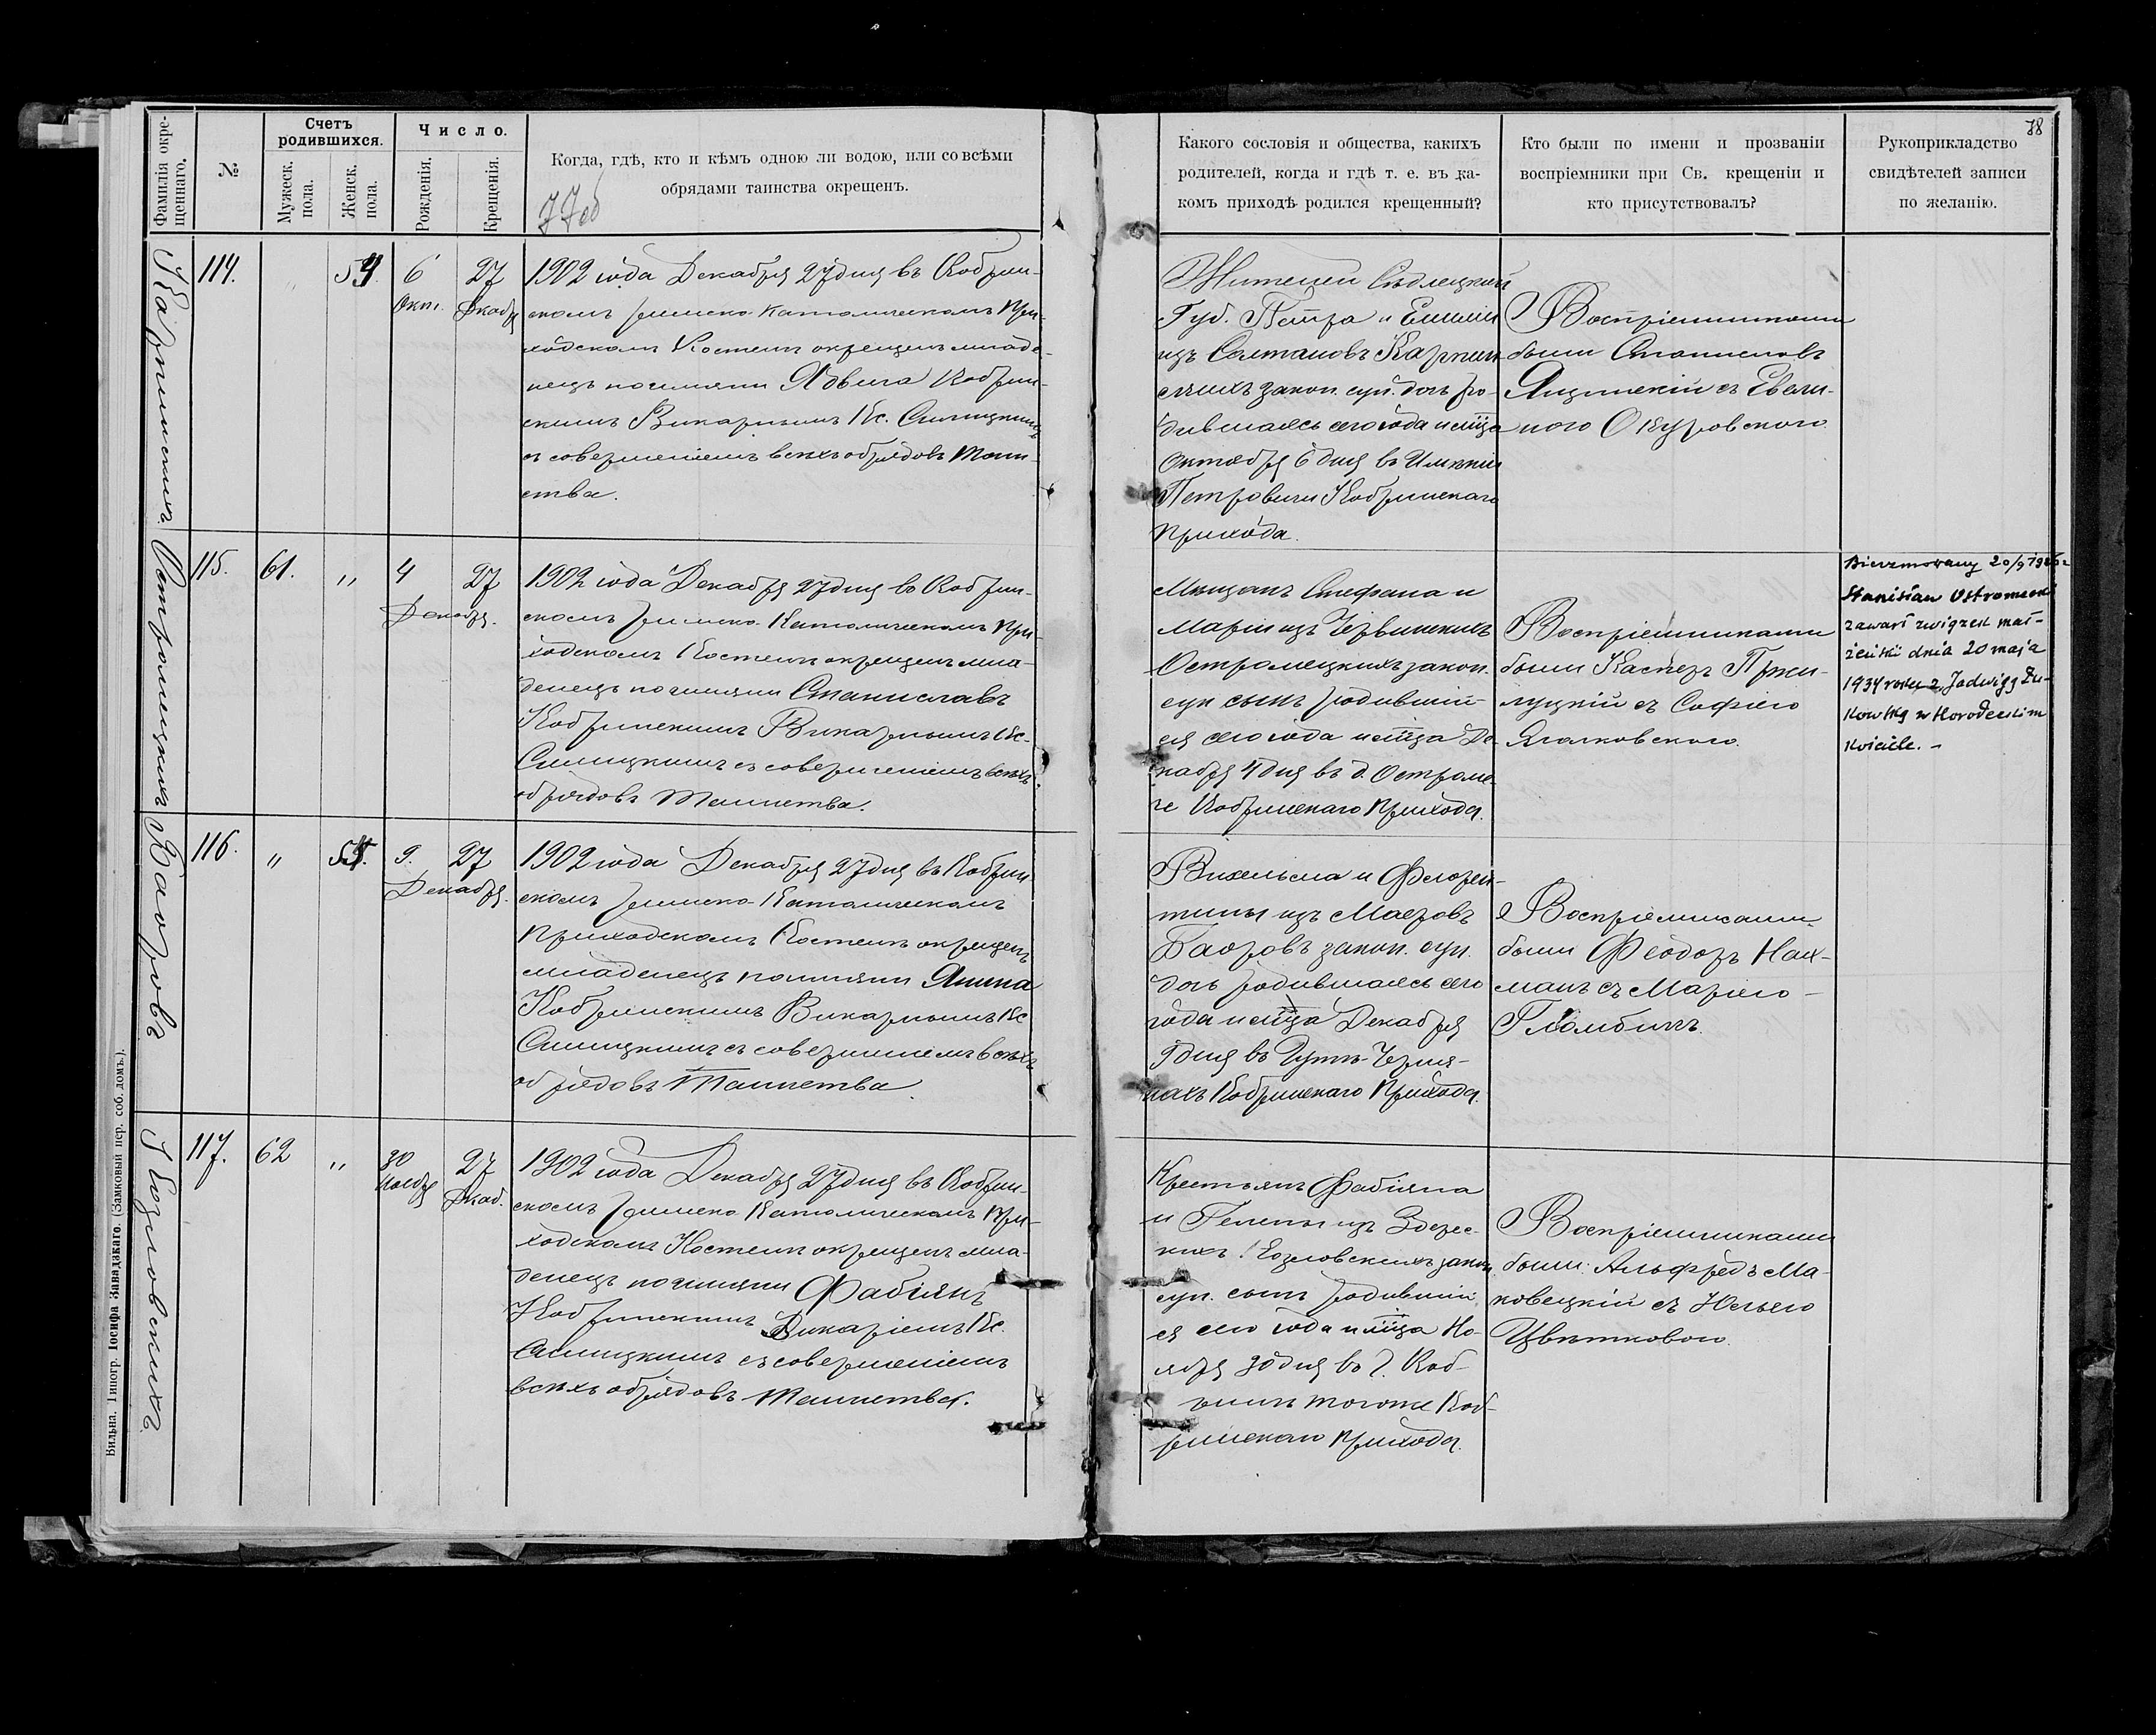 78
Фамилія окре-
щеннаго.
№
Счетъ
родившихся.
Мужеск.
пола.
Женск.
пола.
Число.
Рожденія.
Крещенія.
Когда, гдѣ, кто и кѣмъ одною ли водою, или со всѣми
обрядами таинства окрещенъ.
Какого сословія и общества, какихъ
родителей, когда и гдѣ т. е. въ ка-
комъ приходѣ родился крещенный?
Кто были по имени и прозванiи
воспріемники при Св. крещеніи и
кто присутствовалъ?
Рукоприкладство
свидѣтелей записи
по желанію.
114.
6
Окт.
27
Декабр
1902 года Декабря 27 дня въ Кобрин-
скомъ римско-католическомъ при-
ходскомъ костелѣ окрещенъ младе-
нецъ по имени Ядвига Кобрин-
скимъ Викарнымъ Кс.
съ совершеніемъ всѣхъ обрядовъ таин-
ства.
Жителей Сѣдлецкой
Губ. Петра и Емиліи
изъ Салтановъ Карпин-
скихъ закон. суп. дочь ро-
дившаяся сего года мѣсца
Октября 6 дня въ имѣніи
Петровичи Кобринскаго
прихода.
Воспріемниками
были Станиславъ
съ Евели-
ною
Остромецкихъ
115.
61.
"
4
Декабр.
27
1902 года Декабря 27 дня въ Кобрин-
скомъ римско-католическомъ при-
ходскомъ костелѣ окрещенъ мла-
денецъ по имени Станиславъ
Кобринскимъ Викарнымъ Кс.
съ совершеніемъ всѣхъ
обрядовъ таинства.
Мѣщанъ Стефана и
Маріи изъ Червинскихъ
Остромецкихъ закон.
суп сынъ родившій-
ся сего года мѣсца Де-
кабря 4 дня въ д. Остроме-
че Кобринскаго прихода.
Воспріемниками
были Касперъ Пржи-
луцкій съ Софіею
Bierzmowany 20/9
Stanisław Ostromecki
zawarł związek mał-
żeński dnia 20 maja
1934 roku z Jadwigą Żu-
kowską w Horodeckim
kościele. -
Баоровъ
116.
"
9.
Декабря.
27
1902 года Декабря 27 дня въ Кобрин-
скомъ римско-католическомъ
приходскомъ костелѣ окрещенъ
младенецъ по имени Янина
Кобринскимъ Викарнымъ Кс
съ совершеніемъ всѣхъ
обрядовъ таинства.
Вильгельма и Флорен-
тины изъ Маеровъ
Баоровъ закон. суп.
дочь родившаяся сего
года мѣсца Декабря
9 дня въ
Кобринскаго прихода.
Воспріемниками
были Феодоръ
съ Маріею
Козловскихъ
117.
62
"
30
Ноябр
27
Декаб.
1902 года Декабря 27 дня въ Кобрин-
скомъ римско-католическомъ при-
ходскомъ костелѣ окрещенъ мла-
денецъ по имени Фабіянъ
Кобринскимъ Викаріемъ Кс.
съ совершеніемъ
всѣхъ обрядовъ таинства.
Крестьянъ Фабіяна
и Гелены изъ
Козловскихъ закон.
суп. сынъ родившій
ся сего года мѣсца Но-
ября 30 дня въ г. Коб-
ринѣ того же Коб-
ринскаго прихода.
Воспріемниками
были Альфредъ Ма-
ковецкій съ Юльею
Цвѣтковою.
Вильна. Типогр. Іосифа Завадзкаго. (Замковый пер. соб. домъ.).